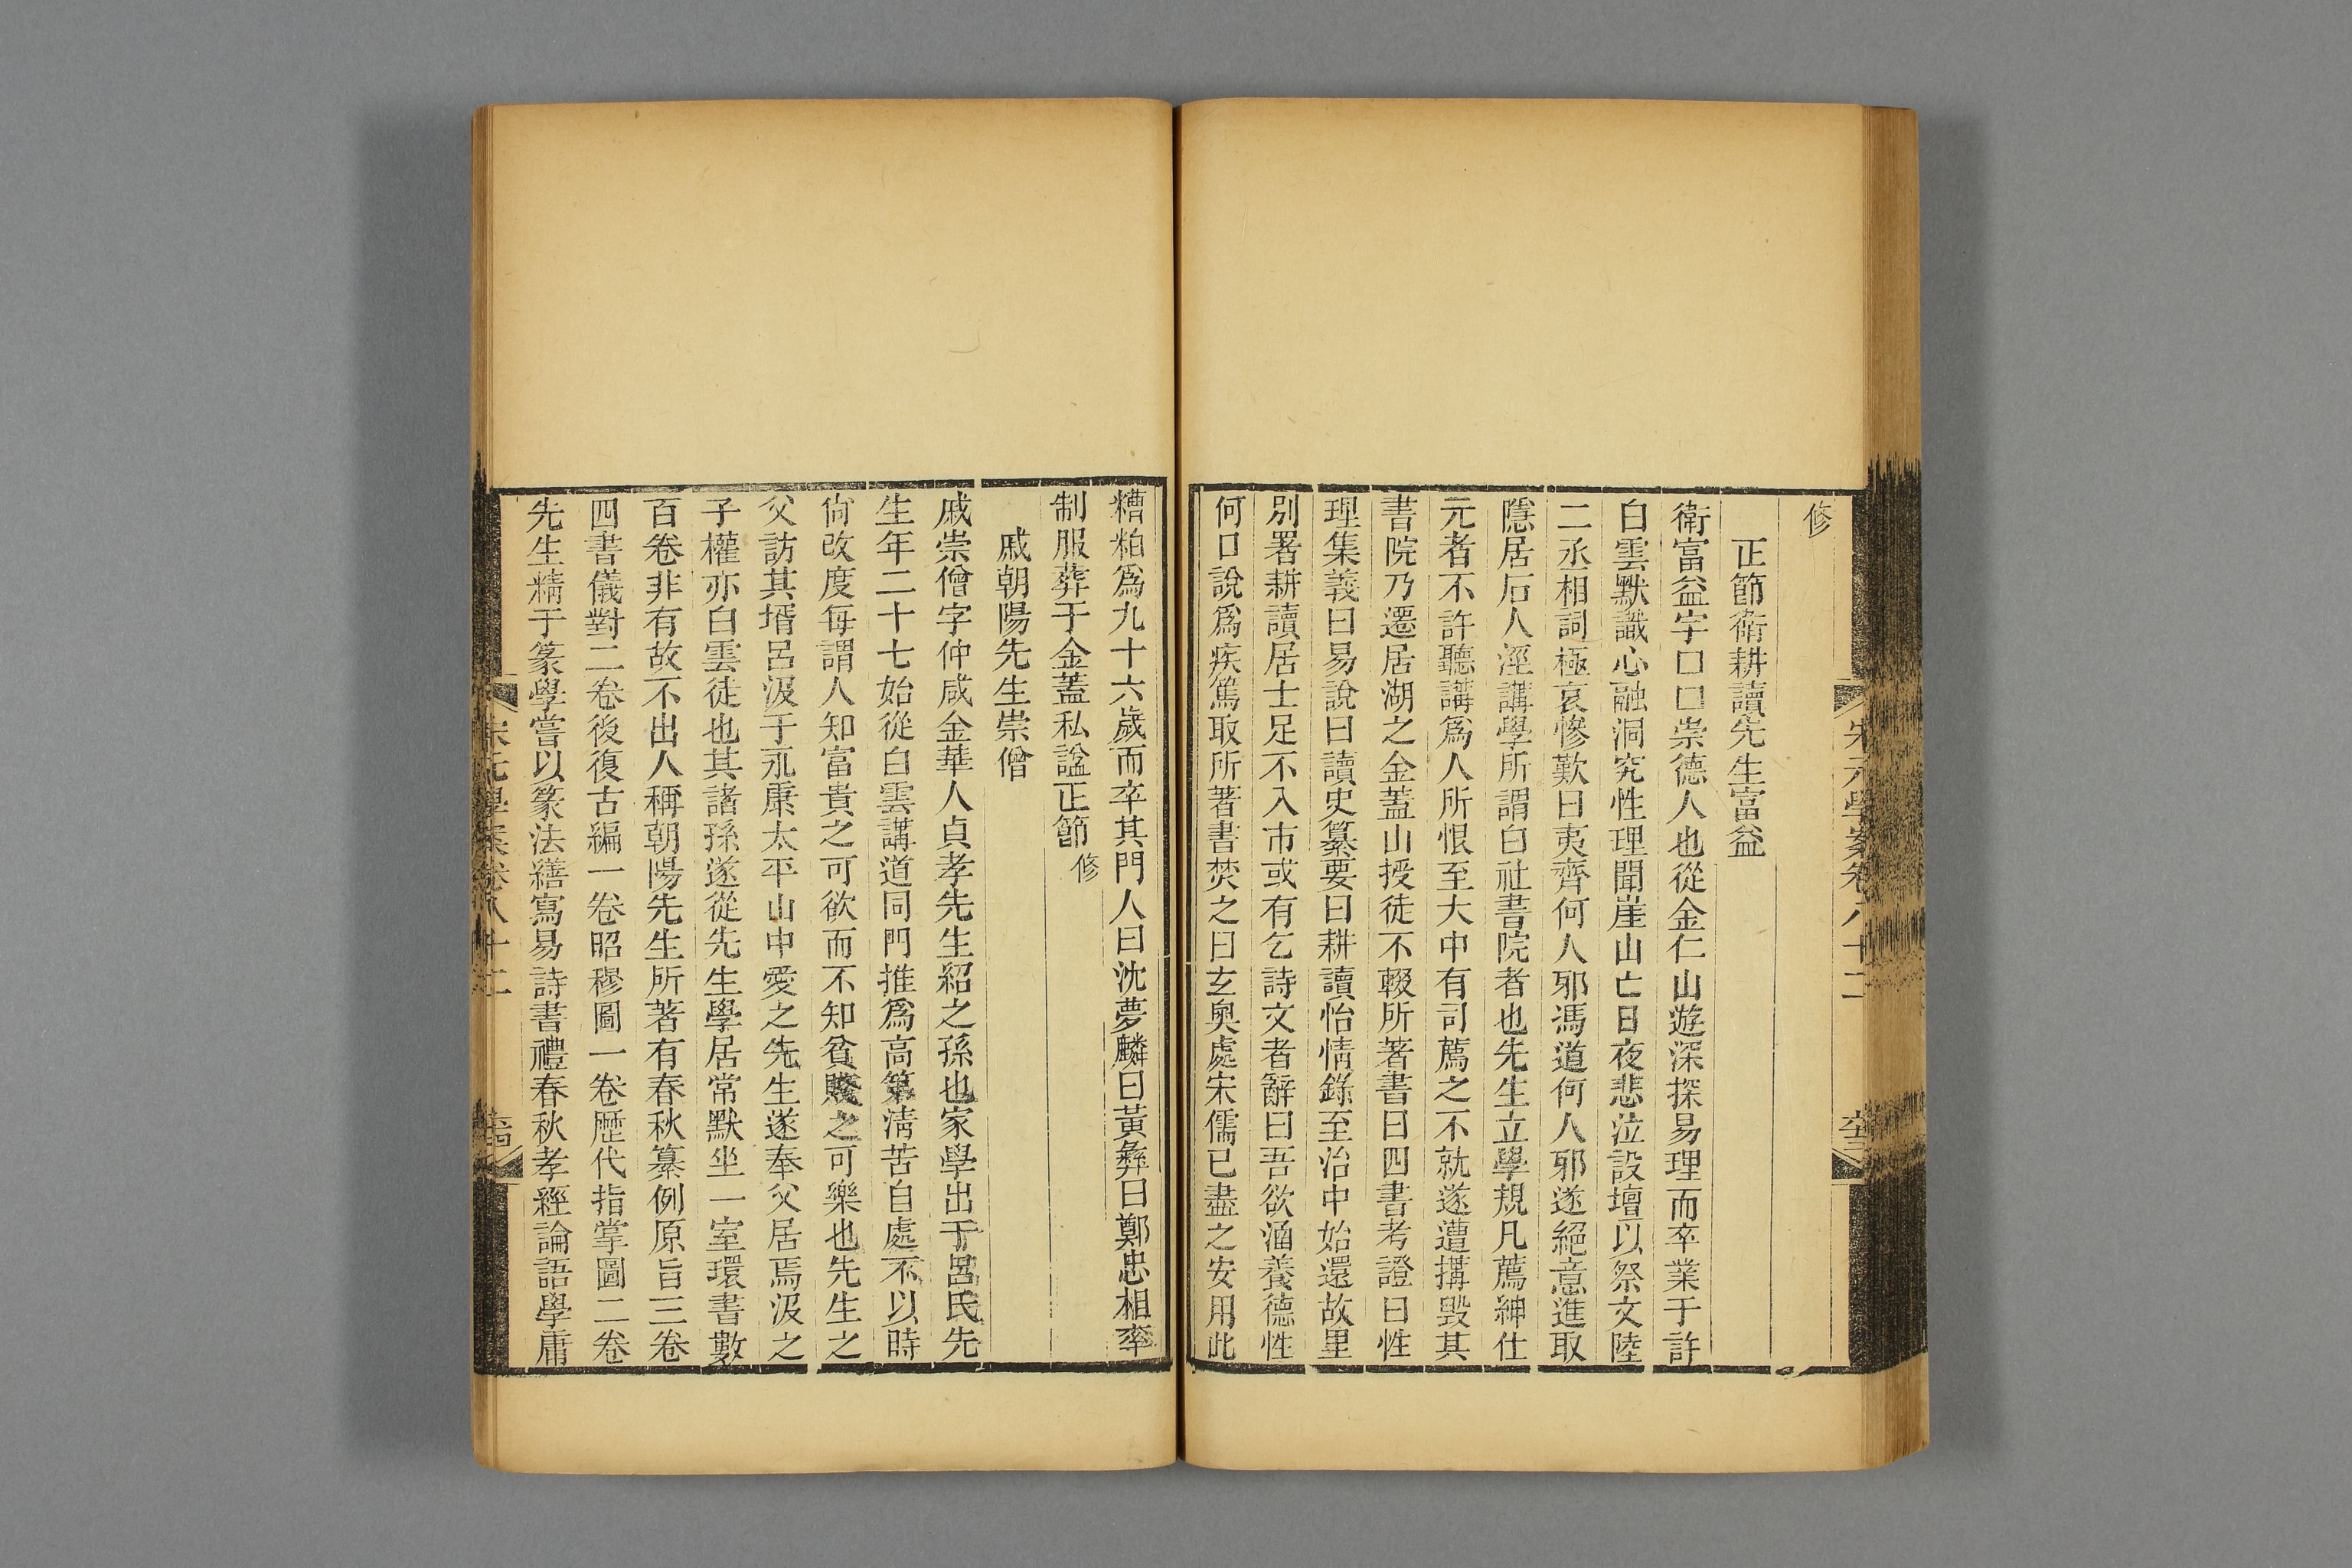 宋元學案卷八十二
修
正節衛耕讀先生富益
衛富益字口口崇德人也從金仁山遊深探易理而卒業于許
白雲默識心融洞究性理聞崖山亡日夜悲泣設壇以祭文陸
二丞相詞極哀慘歎曰夷齊何人邪馮道何人邪遂絕意進取
隱居石人涇講學所謂白社書院者也先生立學規凡薦紳仕
元者不許聽講爲人所恨至大中有司薦之不就遂遭搆毀其
書院乃遷居湖之金蓋山授徒不輟所著書曰四書考證曰性
理集義曰易說曰讀史纂要曰耕讀怡情錄至治中始還故里
別署耕讀居士足不入市或有乞詩文者辭曰吾欲涵養德性
何口說爲疾篤取所著書焚之曰玄奧處宋儒已盡之安用此
糟粕爲九十六歲而卒其門人曰沈夢麟曰黃彝曰鄭忠相率
制服葬于金蓋私諡正節修
戚朝陽先生崇僧
戚崇僧字仲咸金華人貞孝先生紹之孫也家學出于呂氏先
生年二十七始從白雲講道同門推爲高第淸苦自處不以時
尙改度每謂人知富貴之可欲而不知貧賤之可樂也先生之
父訪其壻呂汲于永康太平山中愛之先生遂奉父居焉汲之
子權亦白雲徒也其諸孫遂從先生學居常默坐一室環書數
百卷非有故不出人稱朝陽先生所著有春秋纂例原旨三卷
四書儀對二卷後復古編一卷昭穆圖一卷歷代指掌圖二卷
先生精于篆學嘗以篆法繕寫易詩書禮春秋孝經論語學庸
宋元學案卷八十二